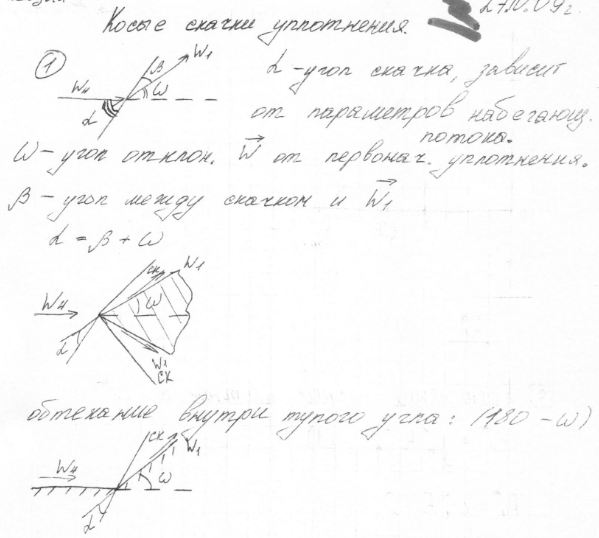 27.IV.09г.
Косые скачки уплотнения.
1 Wн β W1 ω α
α - угол скачка, зависит
от параметров набегающ.
потока.
ω - угол отклон. W от первонач. уплотнения.
β - угол между скачком и W1
α = β + ω
Wн α ск W1 ω W1 ск
обтекание внутри тупого угла: (180 - ω)
Wн α ск W1 ω